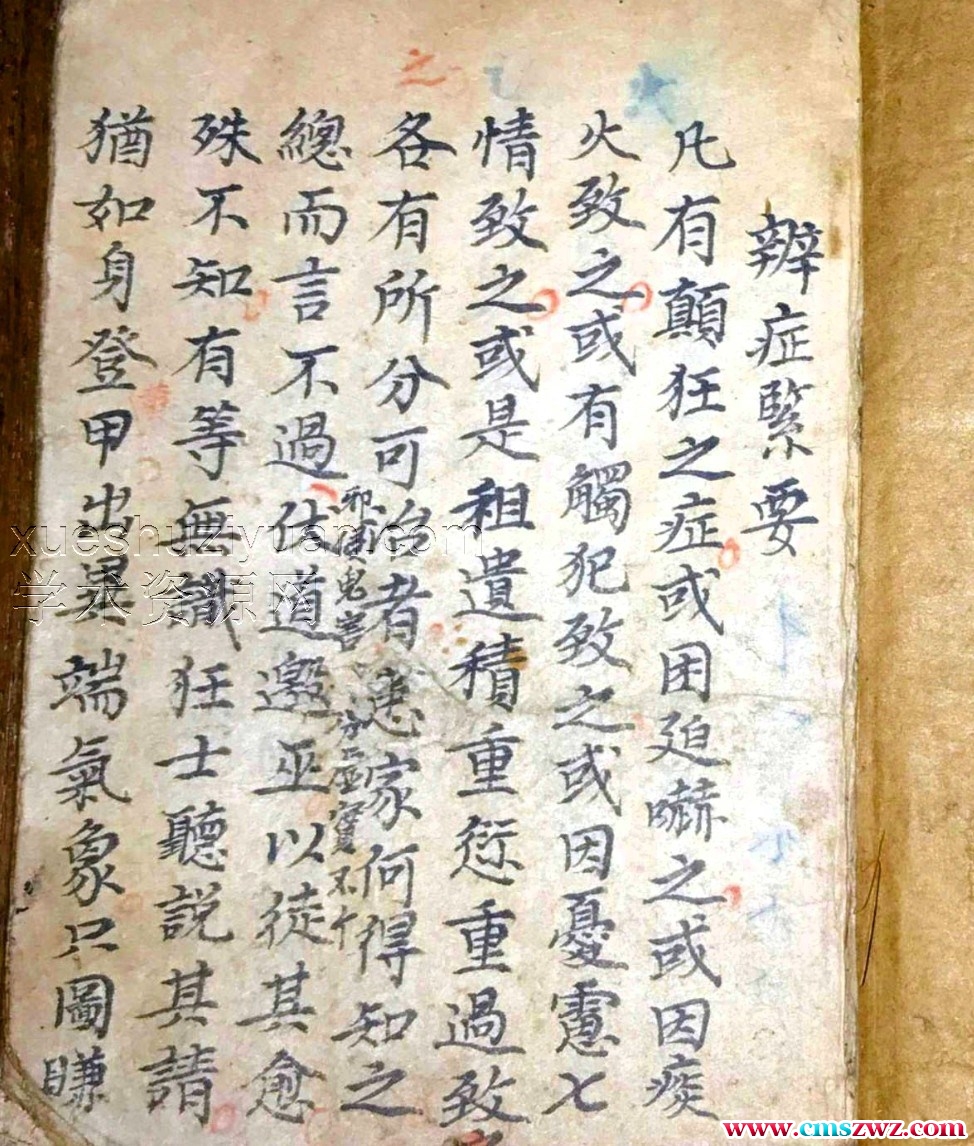 辨症緊要
凡有顛狂之症或困廹嚇之或因痰
火致之或有觸犯致之或因憂慮七
情致之或是祖遺積重愆重過致
各有所分可治者患家何得知之
邪淫鬼害 分虛實 不个
總而言不過伏道邀巫以徒其愈
殊不知有等無識狂士聽說其請
猶如身登甲出異端氣象只圖賺
之
xueshuziyuan.com
学术资源网
www.cmszwz.com